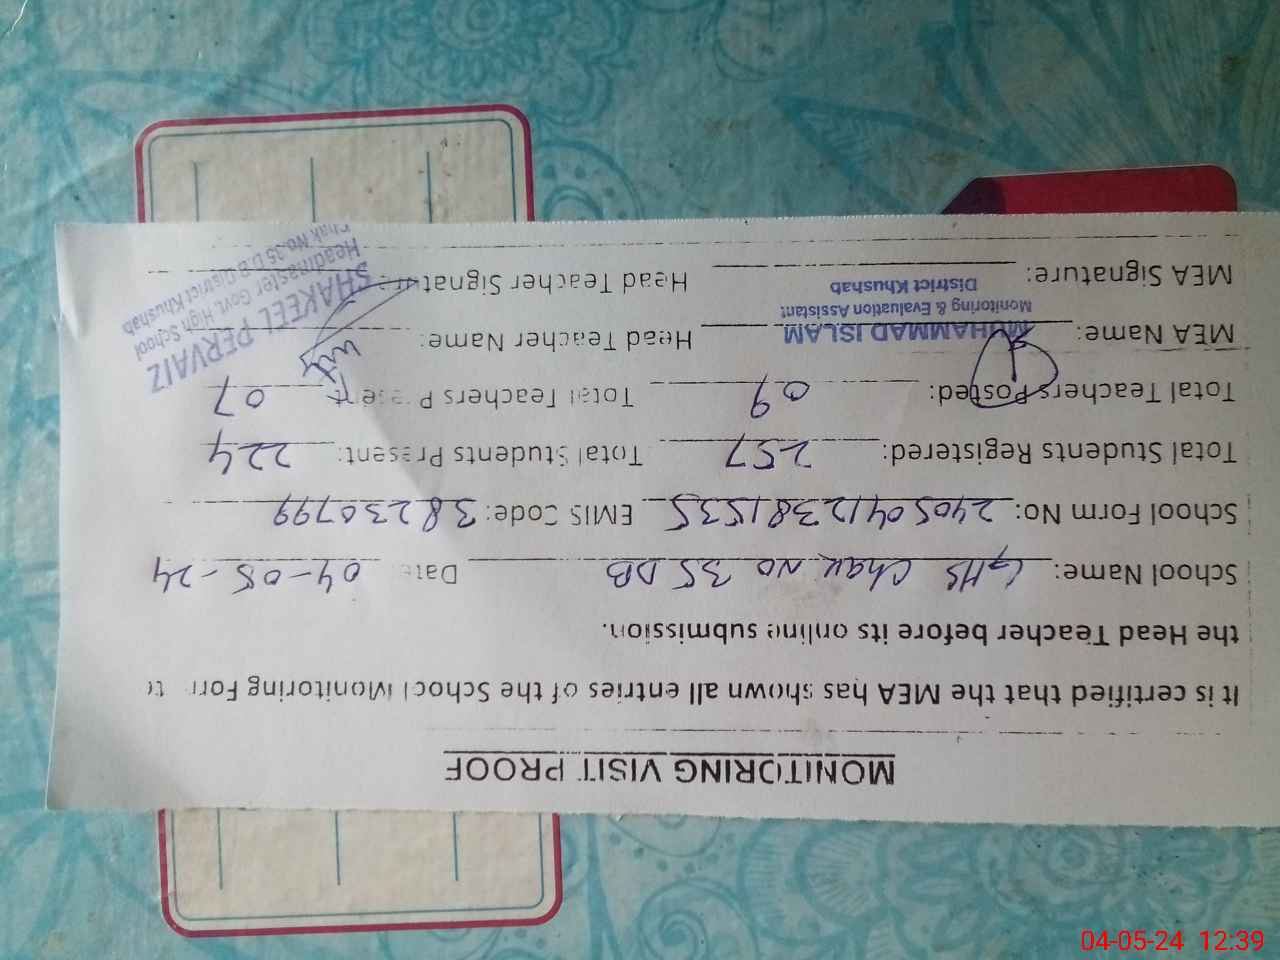 MONITORING VISIT PROOF
It is certified that the MEA has shown all entries of the School Monitoring Form to
the Head Teacher before its online submission.
School Name: GHS Chak No 35 DB Date: 04-05-24
School Form No: 24050412381535 EMIS Code: 38230799
Total Students Registered: 257 Total Students Present: 224
Total Teachers Posted: 09 Total Teachers Present: 07
MEA Name: MUHAMMAD ISLAM Head Teacher Name: SHAKEEL PERVAIZ
Monitoring & Evaluation Assistant Headmaster Govt. High School
District Khushab Chak No.35 D.B District Khushab
MEA Signature: Head Teacher Signature:
04-05-24 12:39